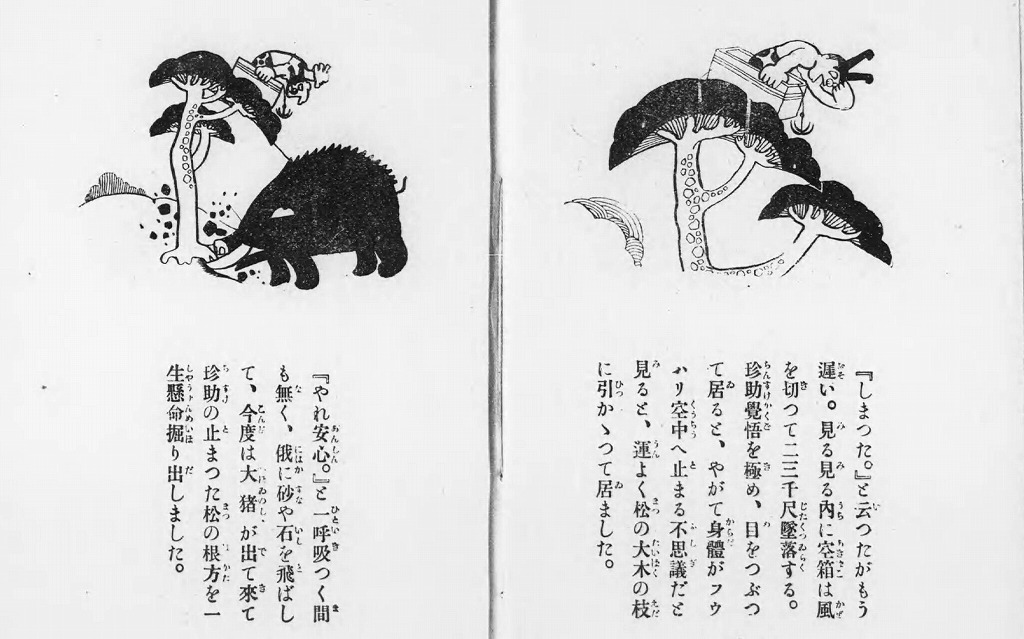 『しまつた。』と云つたがもう
遅い。見る見る內に空箱は風
を切つて二三千尺墜落する。
珍助覺悟を極め、目をつぶつ
て居ると、やがて身體がフウ
ハリ空中へ止まる不思議だと
見ると、運よく松の大木の枝
に引かゝつて居ました。
『やれ安心。』と一呼吸つく間
も無く、俄に砂や石を飛ばし
て、今度は大猪が出て來て
珍助の止まつた松の根方を一
生懸命掘り出しました。